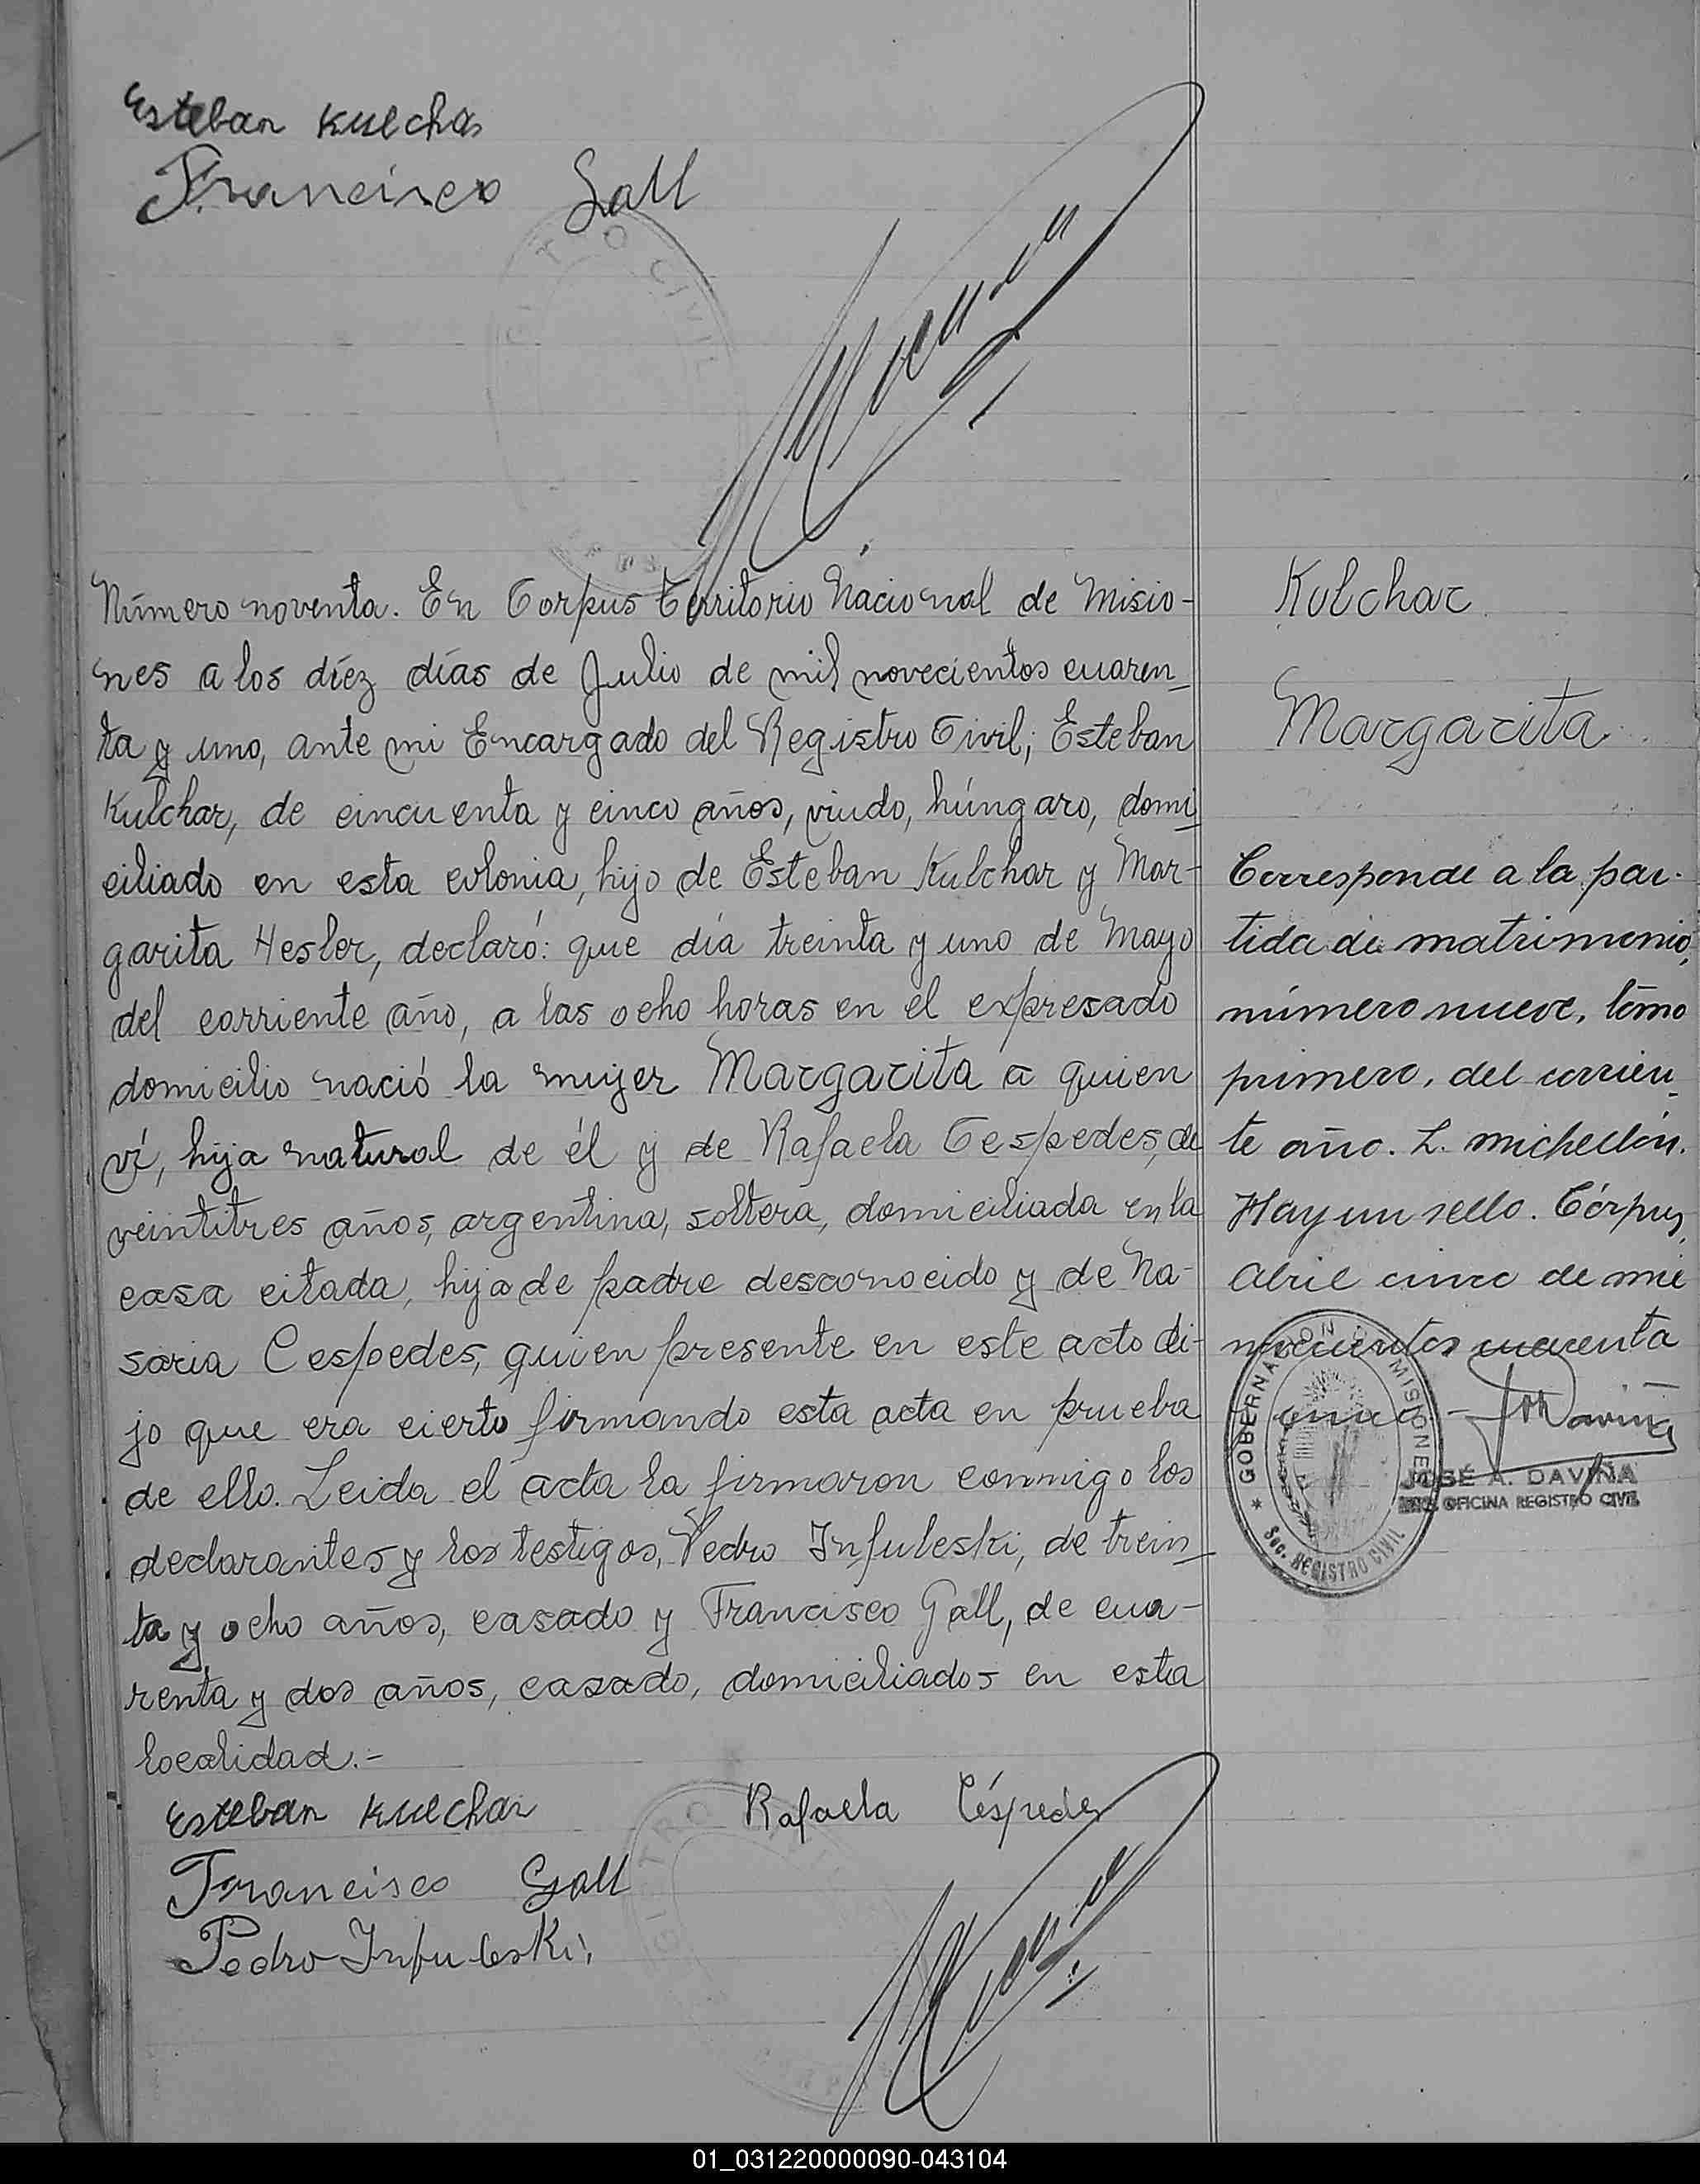 Esteban Kulchar
Francisco Gall
Número noventa. En Corpus Territorio Nacional de Misio-
nes a los diéz días de Julio de mil novecientos cuaren_
ta y uno, ante mi Encargado del Registro Civil; Esteban
Kulchar, de cincuenta y cinco años, viudo, húngaro, domi_
ciliado en esta colonia, hijo de Esteban Kulchar y Mar-
garita Hesler, declaró: que día treinta y uno de Mayo
del corriente año, a las ocho horas en el expresado
domicilio nació la mujer Margarita a quien
ví, hija natural de él y de Rafaela Cespedes, de
veintitres años, argentina, soltera, domiciliada en la
casa citada, hija de padre desconocido y de Na-
saria Cespedes, quien presente en este acto di-
jo que era cierto firmando esta acta en prueba
de ello. Leida el acta la firmaron conmigo los
declarantes y los testigos, Pedro Infuleski, de trein_
ta y ocho años, casado y Francisco Gall, de cua-
renta y dos años, casado, domiciliados en esta
localidad.-
Esteban Kulchar Rafaela Céspedes
Francisco Gall
Pedro Infuleski
Kulchar
Margarita
Corresponde a la par-
tida de matrimonio,
número nueve, tomo
primero, del corrien_
te año. L. Michellón.
Hay un sello. Córpus,
Abril cinco de mil
novecientos cuarenta
JOSÉ A. DAVIÑA
OFICINA REGISTRO CIVIL
GOBERNACION MISIONES
Sec. REGISTRO CIVIL
01_031220000090-043104